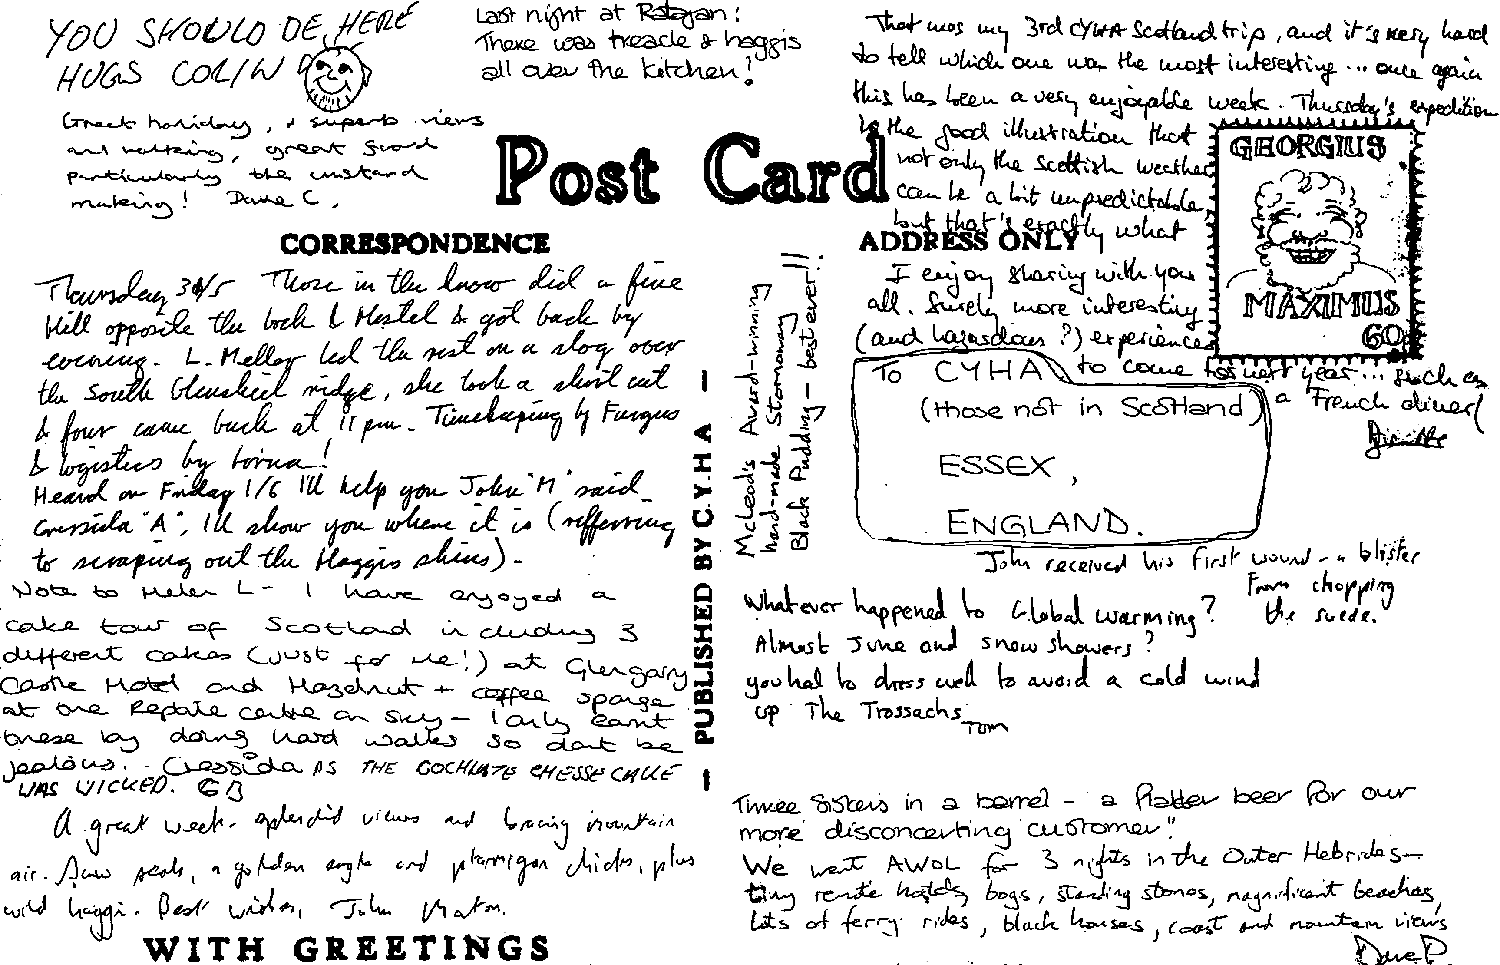 YOU SHOULD BE HERE
HUGS COLIN
Great holiday, & superb views
and walking, great food
particularly the custard
making! Dave C.
Last night at Ratagan:
There was treacle & haggis
all over the kitchen!
That was my 3rd CYHA Scotland trip, and it's very hard
to tell which one was the most interesting... once again
this has been a very enjoyable week. Thursday's expedition
is the good illustration that
not only the Scottish weather
can be a bit unpredictable,
but that's exactly what
I enjoy sharing with you
all. Surely more interesting
(and hazardous?) experiences
to come for next year... such as
a French diner!
Post Card
CORRESPONDENCE
ADDRESS ONLY
GEORGIUS
MAXIMUS
60p
Thursday 30/5 Those in the know did a fine
hill opposite the loch & Hostel & got back by
evening. L. Mellor led the rest on a slog over
the South Glenshiel ridge, she took a short cut
& four came back at 11 pm. Timekeeping by Fungus
& logistics by Lorna!
Heard on Friday 1/6 I'll help you John "M" said
Cressida "A", I'll show you where it is (refferring
to scraping out the Haggis skins).
Note to Helen L - I have enjoyed a
cake tour of Scotland including 3
different cakes (just for me!) at Glengarry
Castle Hotel and Hazelnut + coffee sponge
at one Reptile centre on Sky - I only earnt
these by doing hard walks so dont be
jealous. Cressida AS THE COCHLATE CHESSE CAKE
WAS WICKED. GB
A great week - splendid views and bracing mountain
air. Saw seals, a golden eagle and ptarmigan chicks, plus
wild haggi. Best wishes, John Maton.
WITH GREETINGS
— PUBLISHED BY C.Y.H A —
McLeod's Award-winning
hand-made Stornoway
Black Pudding - best ever!!
To CYHA
(those not in Scotland)
ESSEX,
ENGLAND.
John received his first wound - a blister
from chopping
the suede.
Whatever happened to Global warming?
Almost June and snow showers?
you had to dress well to avoid a cold wind
up The Trossachs
Tom
Three Sisters in a barrel - a Platter beer for our
more disconcerting customer!!
We went AWOL for 3 nights in the Outer Hebrides—
tiny remote hostels, bogs, standing stones, magnificent beaches,
lots of ferry rides, black houses, coast and mountain views
Dave P.